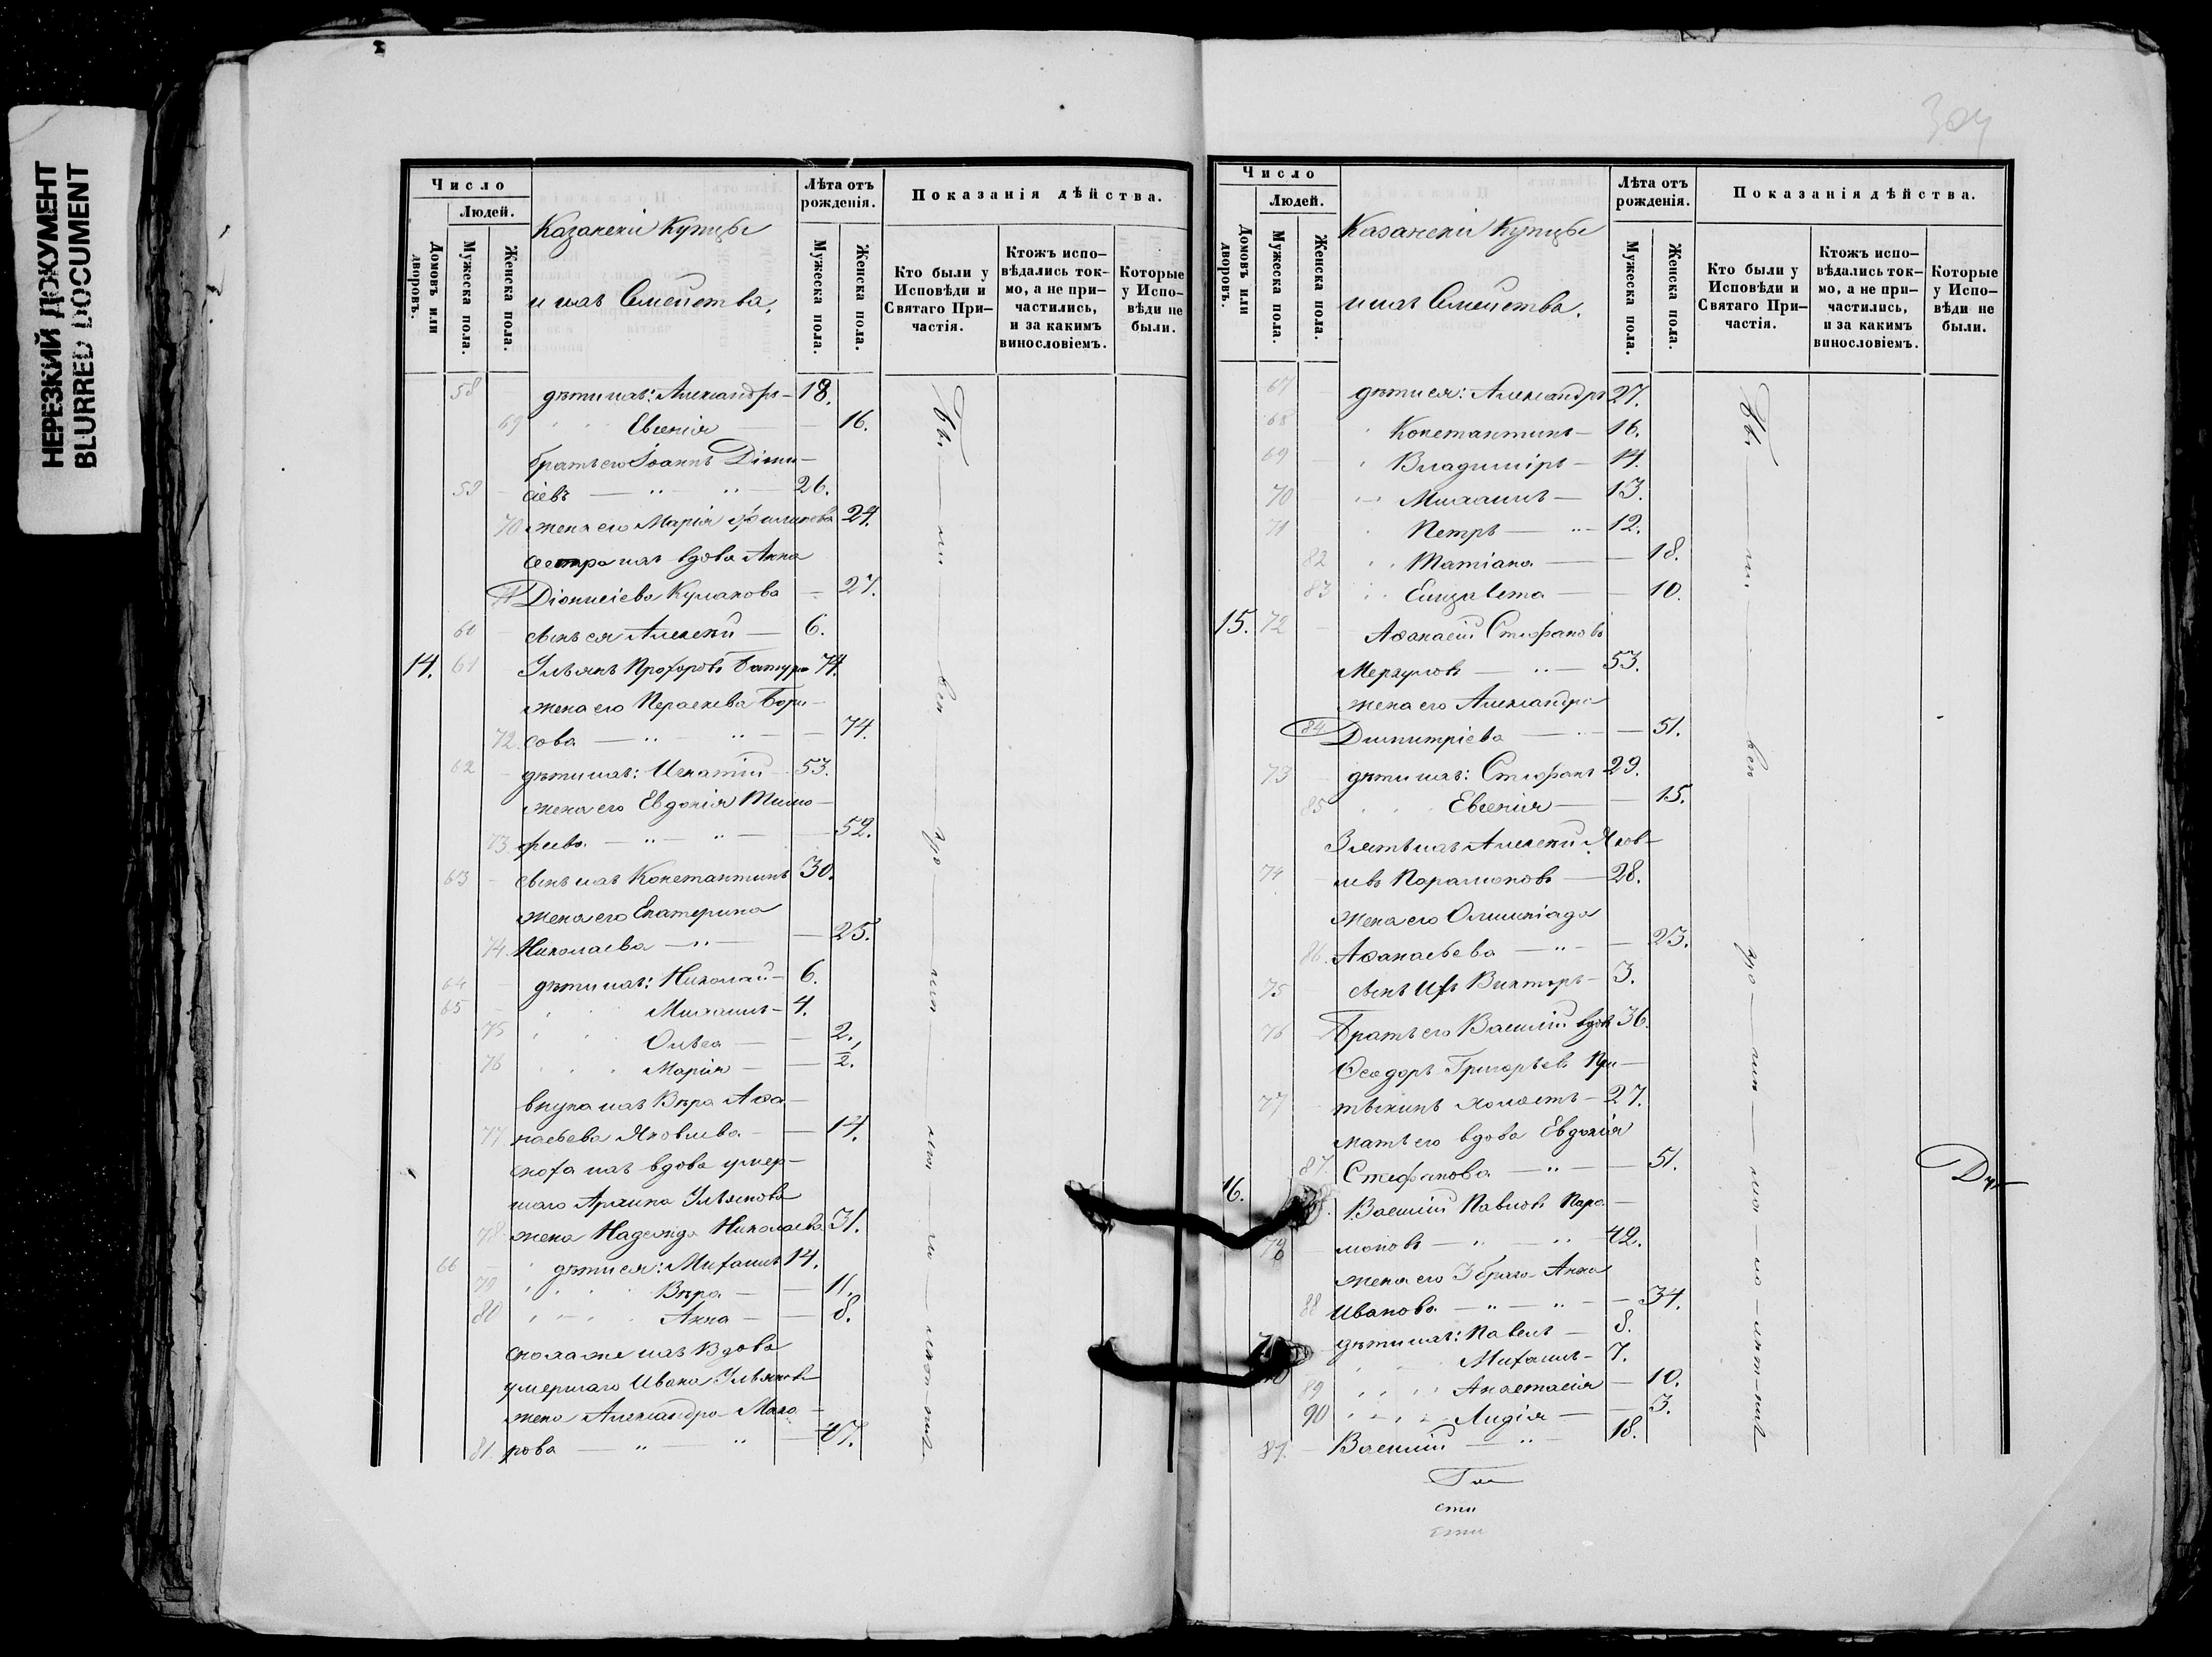 НЕРЕЗКИЙ ДОКУМЕНТ
BLURRED DOCUMENT
Число
Людей.
Домовъ или дворовъ.
Мужеска пола.
Женска пола.
Казанскіи Купцы
и ихъ Семейства.
Лѣта отъ рожденія.
Мужеска пола.
Женска пола.
Показанія дѣйства.
Кто были у Исповѣди и Святаго Причастія.
Ктожъ исповѣдались токмо, а не причастились, и за какимъ винословіемъ.
Которые у Исповѣди не были.
58 дѣти ихъ: Александръ — 18.
69 Евгенія — 16.
братъ его Іоаннъ Діони-
59 сіевъ — " — " — 26.
70 жена его Марія Филипова 24.
сестра ихъ вдова Анна
71 Діонисіева — 27.
60 сынъ ея Алексѣй — 6.
14. 61 Ульянъ Прохоровъ 74.
жена его Параскева Бори-
72. сова — " — " — 74.
62 дѣти ихъ: Игнатій — 53.
жена его Евдокія Тимо-
73. феева — " — " — 52.
63 сынъ ихъ Константинъ 30.
жена его Екатерина
74. Николаева — " — 25.
64 дѣти ихъ: Николай — 6.
65 Михаилъ — 4.
75 Ольга — 2.
76 Марія — 1/2.
внука ихъ Вѣра Аѳа-
77 насьева Яковлева — 14.
сноха ихъ вдова умер-
шаго Архипа Ульянова
78 жена Надежда Николаева 31.
66 дѣти ея: Михаилъ 14.
79 Вѣра — 11.
80 Анна — 8.
сноха же ихъ вдова
умершаго Ивана Ульянова
жена Александра Мака-
81. рова — " — " — 47.
304
Число
Людей.
Домовъ или дворовъ.
Мужеска пола.
Женска пола.
Казанскіи Купцы
и ихъ Семейства.
Лѣта отъ рожденія.
Мужеска пола.
Женска пола.
Показанія дѣйства.
Кто были у Исповѣди и Святаго Причастія.
Ктожъ исповѣдались токмо, а не причастились, и за какимъ винословіемъ.
Которые у Исповѣди не были.
67 дѣти ея: Александръ 27.
68 Константинъ — 16.
69 Владиміръ — 14.
70 Михаилъ — 13.
71 Петръ — " — 12.
82 Татіана — 18.
83 Елизавета — 10.
15. 72 Аѳанасій Стефановъ
Меркуловъ — " — 53.
жена его Александра
84 Димитріева — 51.
73 дѣти ихъ: Стефанъ 29.
85 Евгенія — 15.
Зять ихъ Алексѣй Яков-
74 левъ Парамоновъ — 28.
жена его Олимпіада
86. Аѳанасьева — " — 23.
75 сынъ ихъ Викторъ — 3.
76 Братъ его Василій вдовъ 36.
Ѳеодоръ Григорьевъ
77 холостъ — 27.
мать его вдова Евдокія
87. Стефанова — " — 51.
16. Василій Павловъ Пара-
78 моновъ — " — " — 42.
жена его 3 брака Анна
88 Иванова — " — " — 34.
дѣти ихъ: Павелъ — 8.
Михаилъ — 7.
89 Анастасія — 10.
90 Лидія — 3.
81. Василій — " — 18.
сти